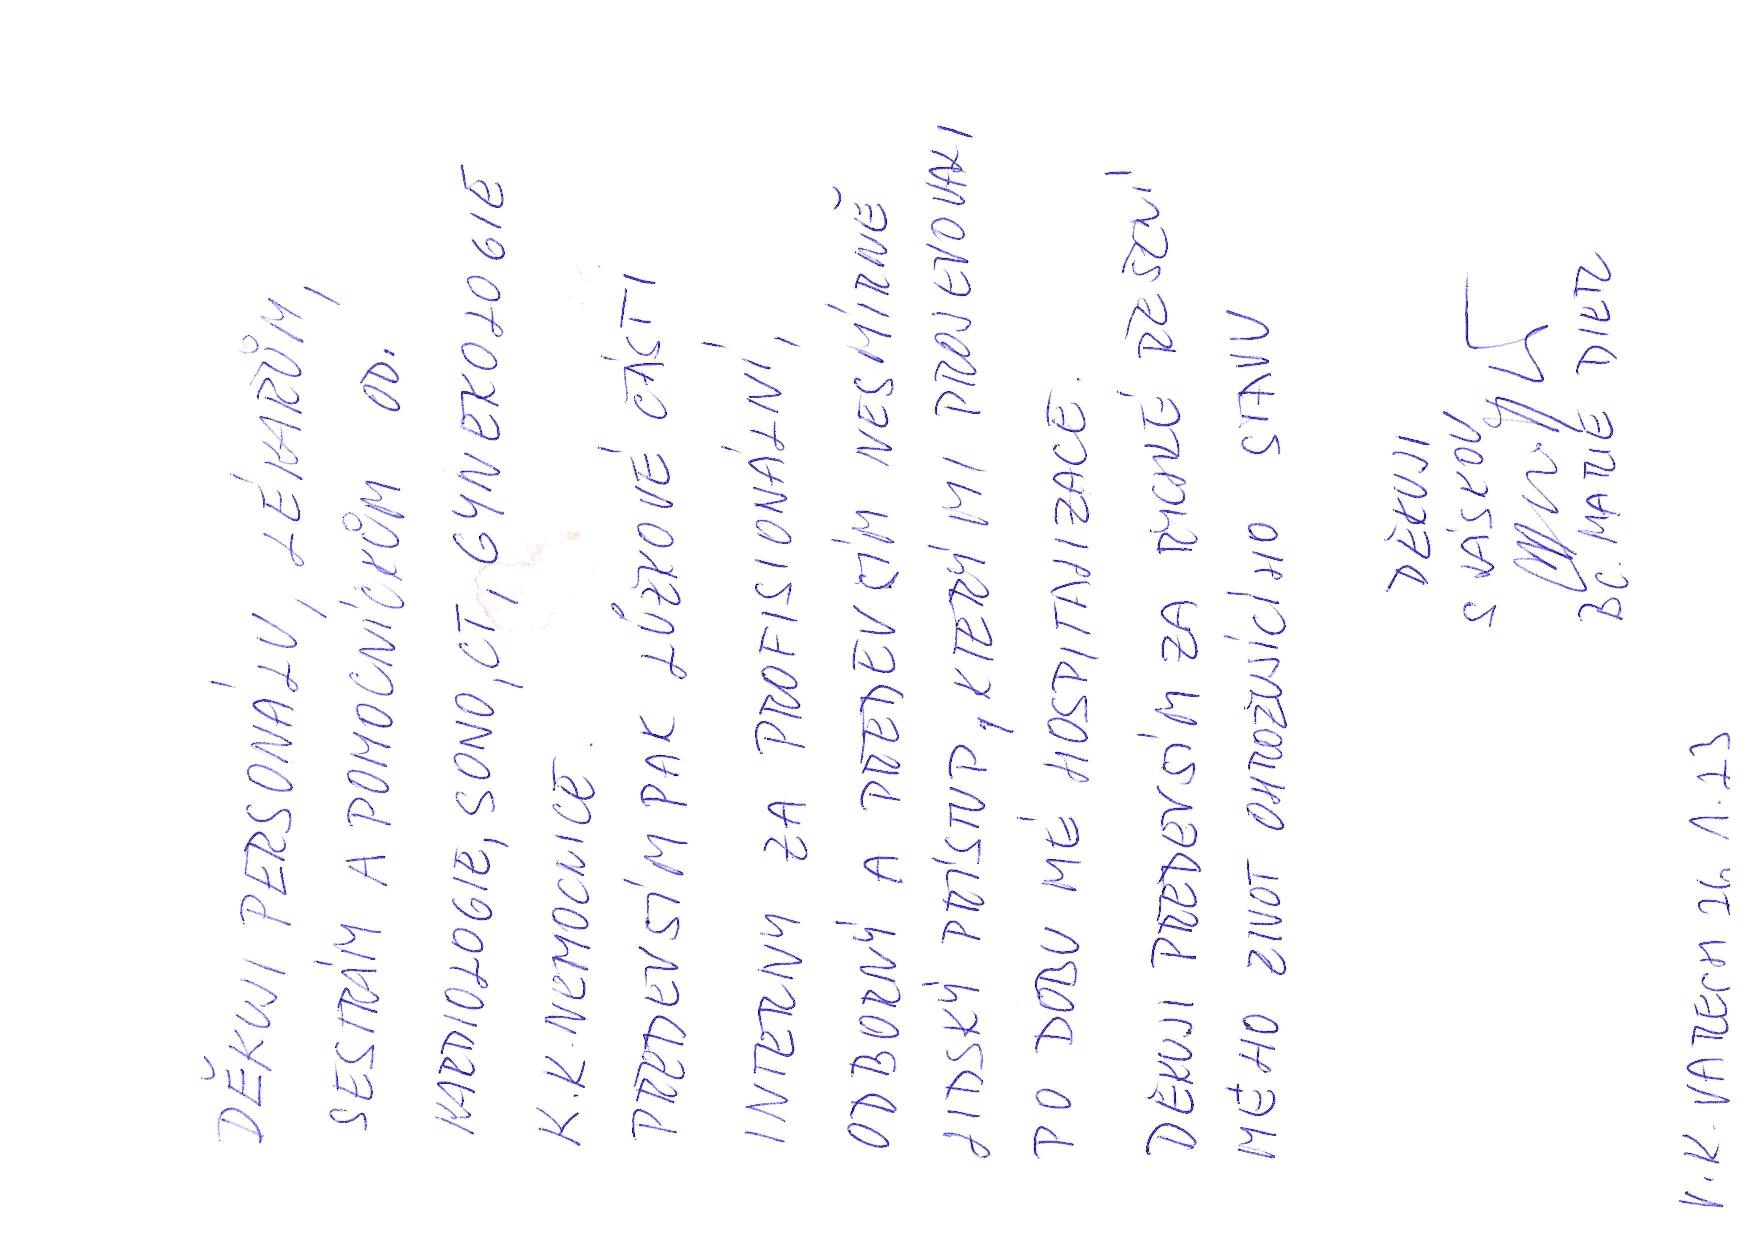 DĚKUJI PERSONÁLU, LÉKAŘŮM,
SESTRÁM A POMOCNÍČKŮM OD.
KARDIOLOGIE, SONO, CT, GYNEKOLOGIE
K.K. NEMOCNICE.
PŘEDEVŠÍM PAK LŮŽKOVÉ ČÁSTI
INTERNY ZA PROFISIONÁLNÍ,
ODBORNÝ A PŘEDEVŠÍM NESMÍRNĚ
LIDSKÝ PŘÍSTUP, KTERÝ MI PROJEVOVALI
PO DOBU MÉ HOSPITALIZACE.
DĚKUJI PŘEDEVŠÍM ZA RYCHLÉ ŘEŠENÍ
MÉHO ŽIVOT OHROŽUJÍCÍHO STAVU
DĚKUJI
S LÁSKOU
BC. MARIE DIETZ
V.K. VARECH 26. 1. 23